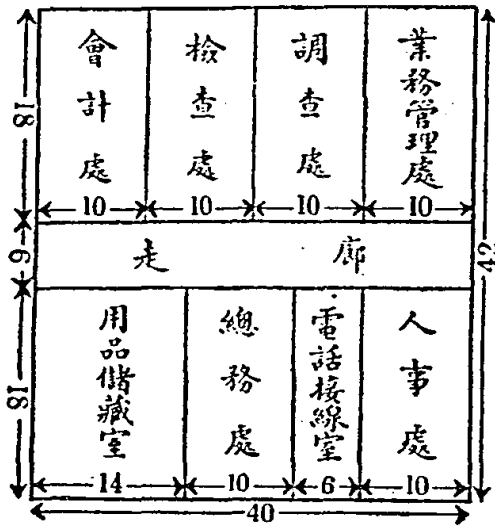 會計處
檢查處
調查處
業務管理處
18
10
10
10
10
走廊
6
42
用品儲藏室
總務處
電話接線室
人事處
18
14
10
6
10
40